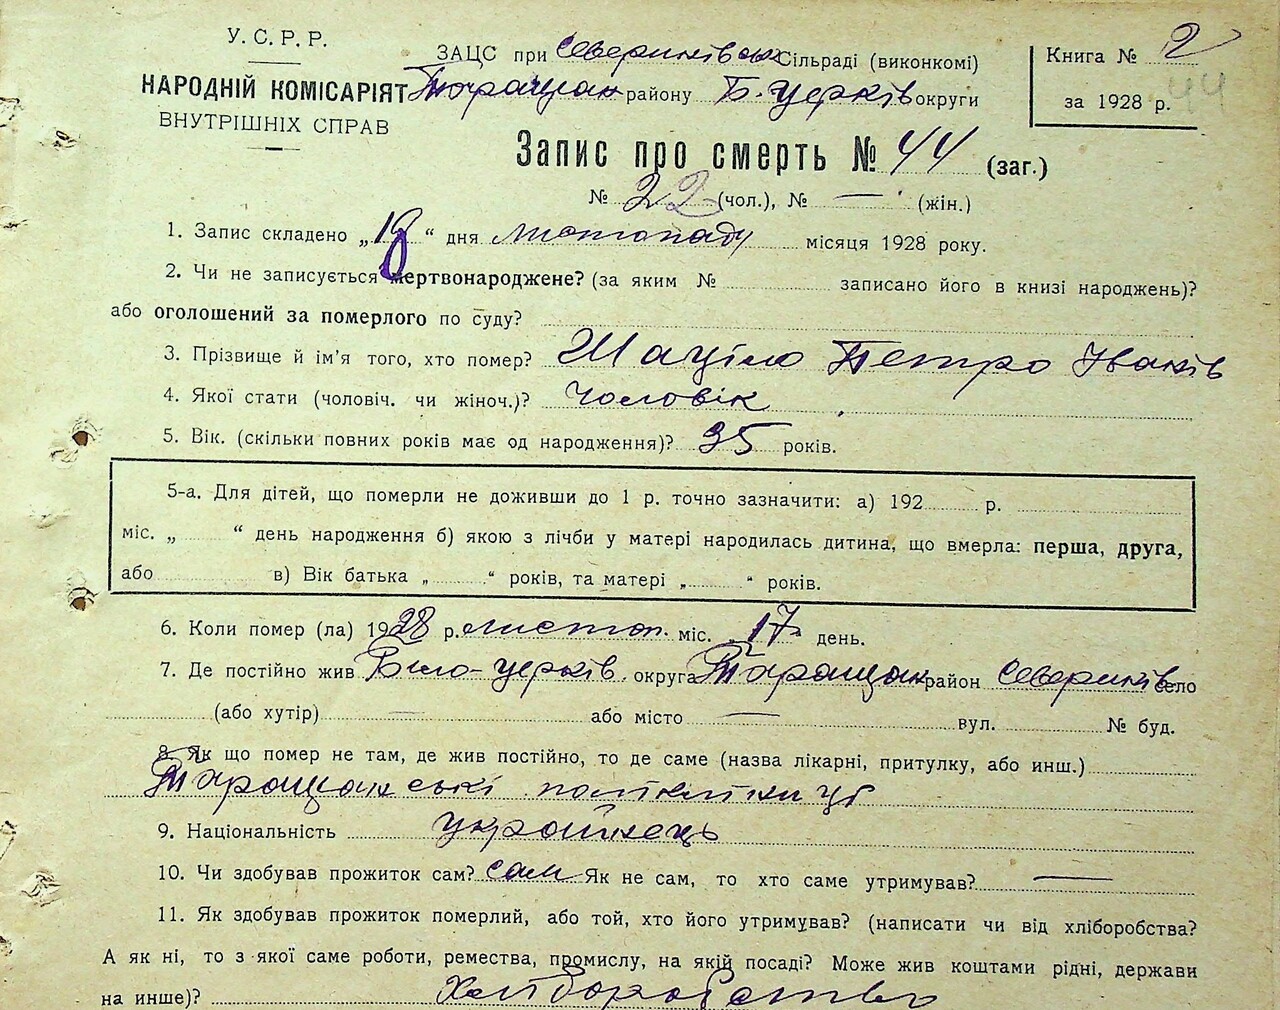 У. С. Р. Р.
НАРОДНІЙ КОМІСАРІЯТ
ВНУТРІШНІХ СПРАВ
ЗАЦС при Севериківськ Сільраді (виконкомі)
Таращан району Б. Церків округи
Книга № 2
за 1928 р. 44
Запис про смерть № 44 (заг.)
№ 22 (чол.), № — (жін.)
1. Запис складено „18“ дня листопаду місяця 1928 року.
2. Чи не записується мертвонароджене? (за яким № записано його в книзі народжень)?
або оголошений за померлого по суду?
3. Прізвище й ім'я того, хто помер? Шаціло Петро Іванів
4. Якої стати (чоловіч. чи жіноч.)? Чоловік
5. Вік. (скільки повних років має од народження)? 35 років.
5-а. Для дітей, що померли не доживши до 1 р. точно зазначити: а) 192 р.
міс. „ “ день народження б) якою з лічби у матері народилась дитина, що вмерла: перша, друга,
або в) Вік батька „ “ років, та матері „ “ років.
6. Коли помер (ла) 1928 р. листоп. міс. „17 день.
7. Де постійно жив Біло-церків. округа Таращан район Севериків село
(або хутір) — або місто — вул. № буд.
8. Як що помер не там, де жив постійно, то де саме (назва лікарні, притулку, або инш.)
Таращанські поліклініці
9. Національність українець
10. Чи здобував прожиток сам? сам Як не сам, то хто саме утримував? —
11. Як здобував прожиток померлий, або той, хто його утримував? (написати чи від хліборобства?
А як ні, то з якої саме роботи, ремества, промислу, на якій посаді? Може жив коштами рідні, держави
на инше)? Хліборобство